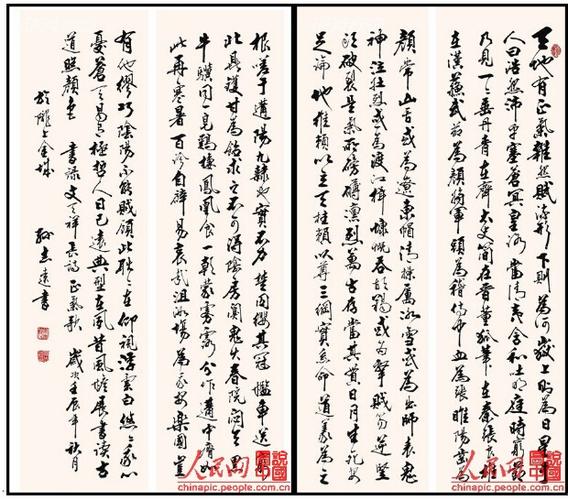 天地有正氣雜然賦流形下則為河嶽上則為日星於
人曰浩然沛乎塞蒼冥皇路當清夷含和吐明庭時窮節
乃見一一垂丹青在齊太史簡在晉董狐筆在秦張良椎
在漢蘇武節為嚴將軍頭為嵇侍中血為張睢陽齒為
顏常山舌或為遼東帽清操厲冰雪或為出師表鬼
神泣壯烈或為渡江楫慷慨吞胡羯或為擊賊笏逆豎
頭破裂是氣所磅礴凜烈萬古存當其貫日月生死安
足論地維賴以立天柱賴以尊三綱實系命道義為之
根嗟予遘陽九隸也實不力楚囚纓其冠傳車送窮
北鼎鑊甘如飴求之不可得陰房闃鬼火春院閟天黑
牛驥同一皂鷄棲鳳凰食一朝蒙霧露分作溝中瘠如
此再寒暑百沴自辟易哀哉沮洳場為我安樂國豈
有他繆巧陰陽不能賊顧此耿耿在仰視浮雲白悠悠我心
憂蒼天曷有極哲人日已遠典型在夙昔風檐展書讀古
道照顏色 書錄文天祥長詩正氣歌 歲次壬辰年秋月
於隴上金城 孫志遠書
人民网 說圖中國
chinapic.people.com.cn
人民网 說圖中國
chinapic.people.com.cn